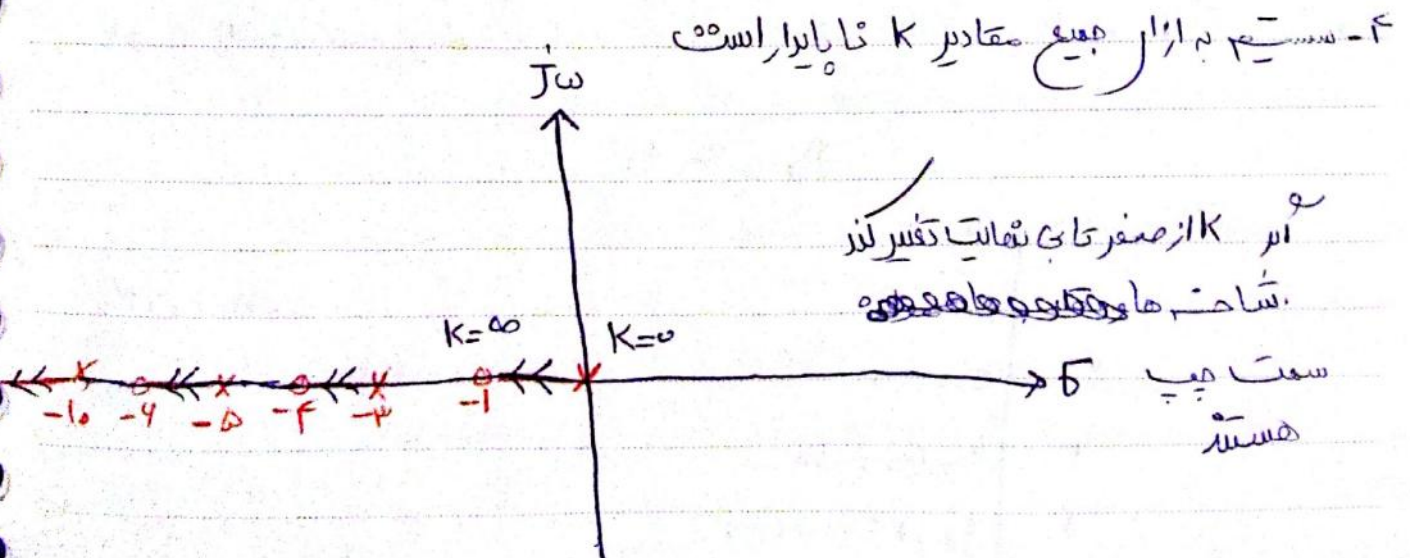 ۴- سیستم به ازای جمیع مقادیر K ناپایدار است
Jω
اگر K از صفر تا بی نهایت تغییر کند
شاخه ها
K=∞ K=۰
سمت چپ
هستند
σ
-۱۰ -۶ -۵ -۴ -۳ -۱